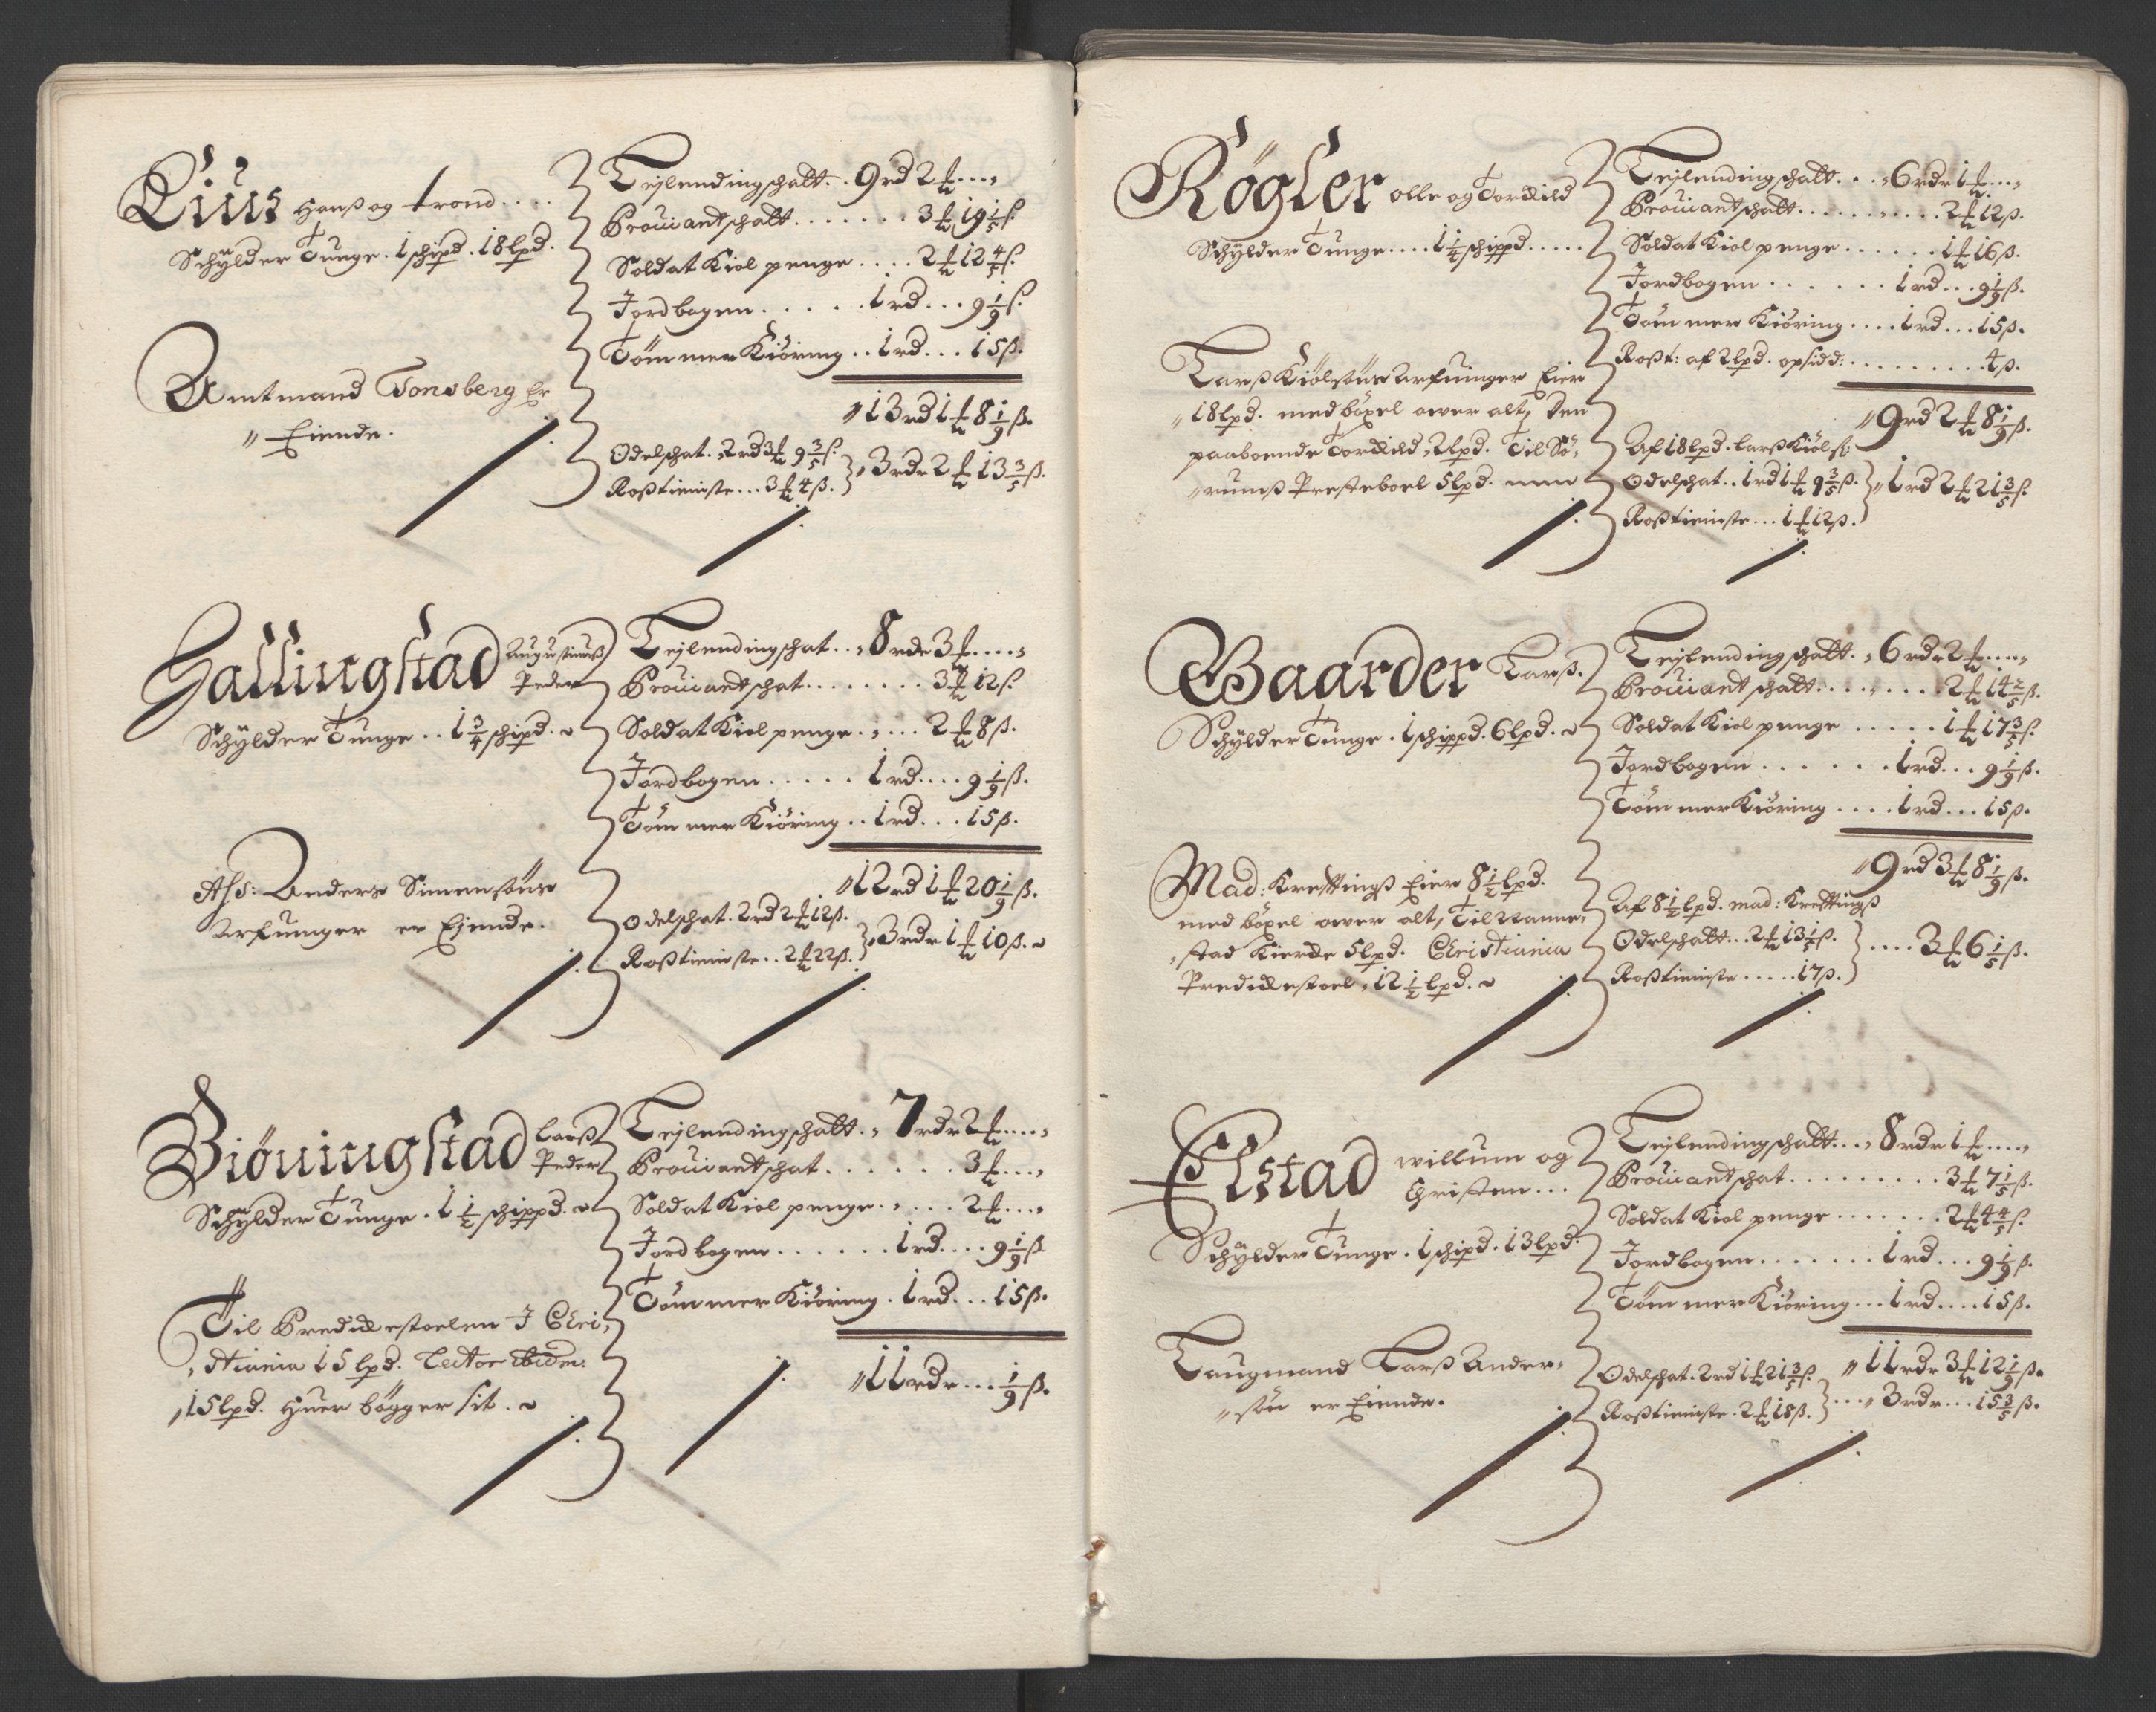 Lius Hanß og trond ....
Schÿlder Tunge . 1 schipd . 18 lpd.
Amtmand Tonsberg Er
Eiende.
Lejlendingschatt . . 9 rd 2 ℔ ...
Prouiantschatt ....... 3 ℔ 19 1/5 ß.
Soldat Kiol penge .... 2 ℔ 12 4/5 ß.
Jordbogen ..... 1 rd ... 9 1/9 ß.
Tømmer Kiøring .. 1 rd ... 15 ß.
13 rd 1 ℔ 8 1/9 ß.
Odelschat . 2 rd 3 ℔ 9 3/5 ß.
Roßtieniste ... 3 ℔ 4 ß. } 3 rdr 2 ℔ 13 3/5 ß.
Gallingstad Augustinuß
Peder
Schÿlder Tunge .. 1 3/4 schipd.
Ass: Anders Simensøns
Arfuinger er Ejende.
Lejlendingschat .. 8 rdr 3 ℔ ....
Prouiantschat ........ 3 ℔ 12 ß.
Soldat Kiol penge .... 2 ℔ 8 ß.
Jordbogen ..... 1 rd .... 9 1/9 ß.
Tømmer Kiøring .. 1 rd ... 15 ß.
12 rd 1 ℔ 20 1/9 ß.
Odelschat . 2 rd 2 ℔ 12 ß.
Roßtieniste .. 2 ℔ 22 ß. } 3 rdr 1 ℔ 10 ß.
Biöningstad Larß
Peder
Schÿlder Tunge . 1 1/2 schippd.
Til Predichestoelen J Chri,
stiania 15 lpd. Lector ibidm:
15 lpd. Huer bøgger sit.
Lejlendingschatt . 7 rdr 2 ℔ ....
Prouiantschat ...... 3 ℔ ...
Soldat Kiol penge .... 2 ℔ ...
Jordbogen ...... 1 rd .... 9 1/9 ß
Tømmer Kiøring . 1 rd ... 15 ß.
11 rdr ... 1/9 ß.
Rögler olle og Torchild
Schÿlder Tunge .... 1 1/4 schippd .....
Larß Kiølsøns Arfuinger Eier
18 lpd. med bøxel ower alt, Den
paaboende Torchild 2 lpd. Til Sö,
rumß Presteboel 5 lpd. uden
Lejlendingschatt ... 6 rdr 1 ℔ ...
Prouiantschatt .......... 2 ℔ 12 ß.
Soldat Kiol penge ...... 1 ℔ 16 ß.
Jordbogen ...... 1 rd ... 9 1/9 ß.
Tømmer Kiøring .... 1 rd ... 15 ß.
Roßt: af 2 lpd. opsidd: ......... 4 ß.
9 rd 2 ℔ 8 1/9 ß.
Af 18 lpd. Larß Kiöls:
Odelschat .. 1 rd 1 ℔ 9 3/5 ß.
Roßtieniste ... 1 ℔ 12 ß. } 1 rd 2 ℔ 21 3/5 ß.
Baarder Larß.
Schÿlder Tunge . 1 schippd. 6 lpd.
Mad: Krettingß Eier 8 1/2 lpd.
med bøxel ower alt, Til Nanne,
stad Kierche 5 lpd. Christiania
Predichestoel, 12 1/2 lpd.
Lejlendingschatt . 6 rdr 2 ℔ ....
Prouiantschatt ....... 2 ℔ 14 2/5 ß.
Soldat Kiol penge ..... 1 ℔ 17 3/5 ß.
Jordbogen ...... 1 rd ... 9 1/9 ß.
Tømmer Kiøring .... 1 rd ... 15 ß.
9 rd 3 ℔ 8 1/9 ß.
Af 8 1/2 lpd. mad: Krettingß
Odelschatt ... 2 ℔ 13 1/5 ß.
Roßtieniste ..... 17 ß. } .... 3 ℔ 6 1/5 ß.
Elstad willum og
Christen ...
Schÿlder Tunge . 1 schipd . 13 lpd.
Laugmand Larß Ander,
søn er Eiende.
Lejlendingschatt ... 8 rdr 1 ℔ ....
Prouiantschat ......... 3 ℔ 7 1/5 ß.
Soldat Kiol penge ....... 2 ℔ 4 4/5 ß.
Jordbogen ....... 1 rd ... 9 1/9 ß.
Tømmer Kiøring ... 1 rd .... 15 ß.
11 rdr 3 ℔ 12 1/9 ß.
Odelschat . 2 rd 1 ℔ 21 3/5 ß.
Roßtieniste . 2 ℔ 18 ß. } .... 3 rdr ... 15 3/5 ß.